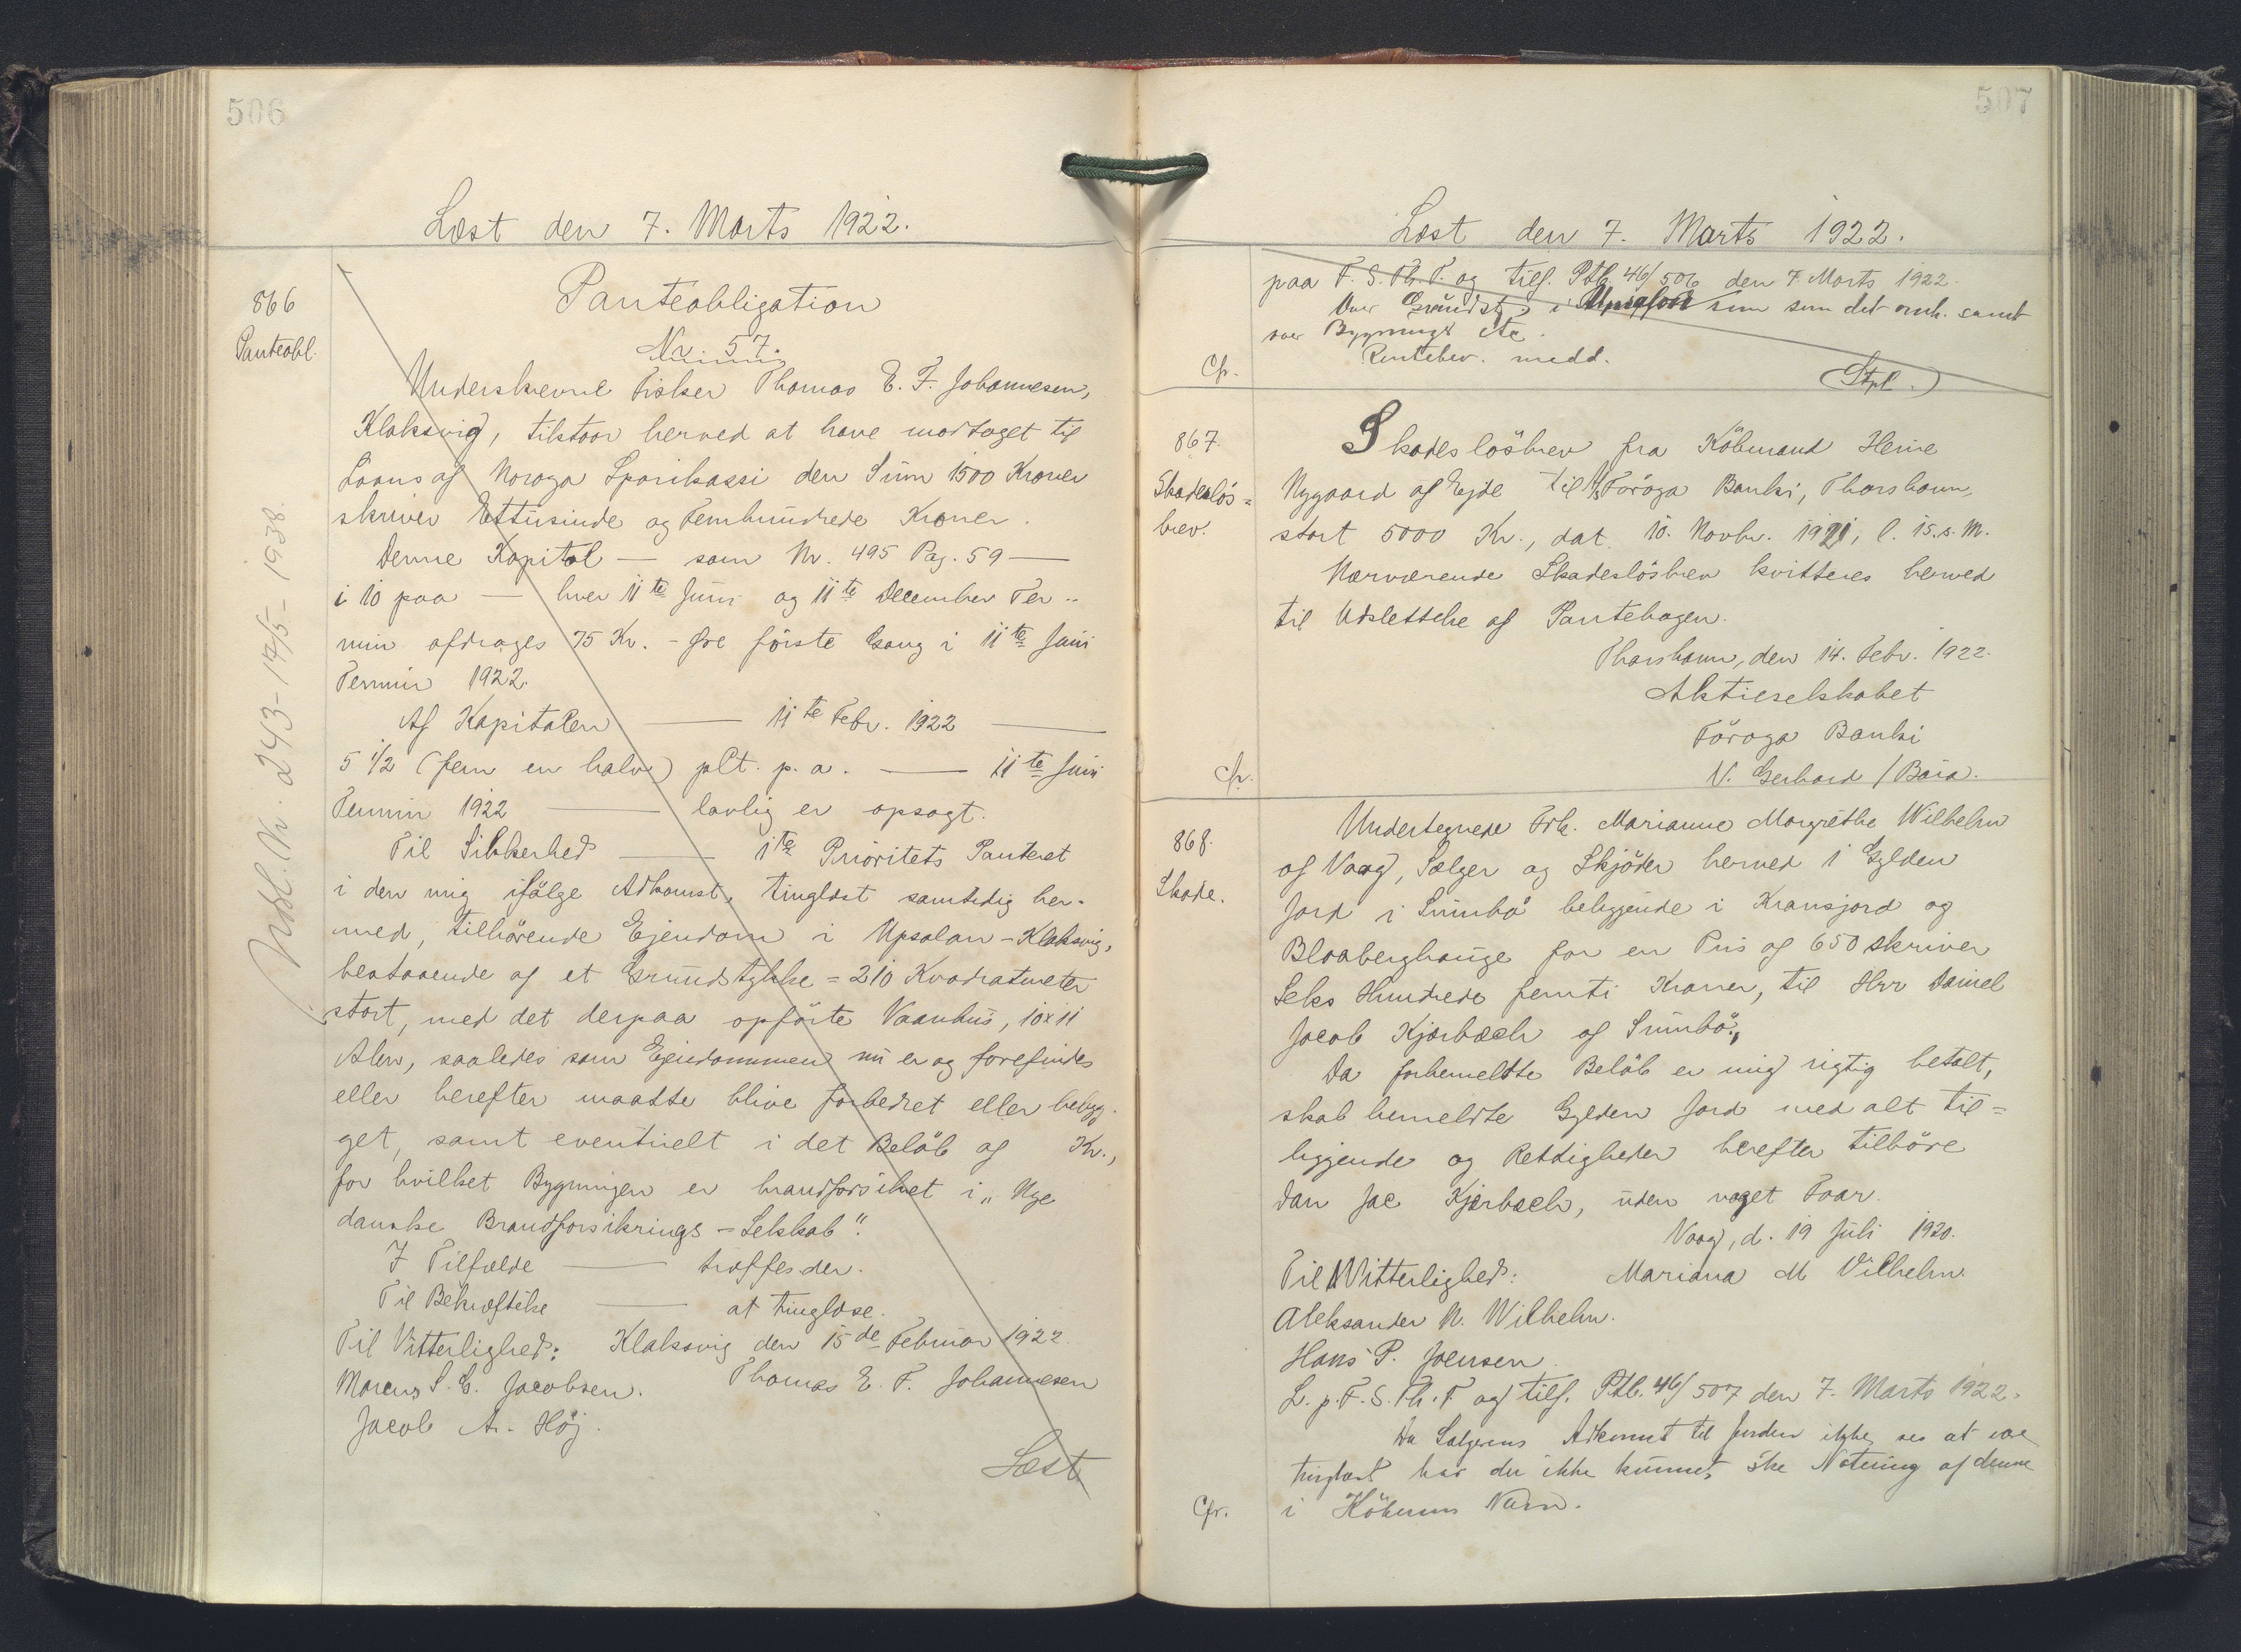 506
Læst den 7. Marts 1922.
866
Panteobl.
Panteobligation
Nr. 57.
Underskrevne Fisker Thomas E. F. Johannesen,
Klaksvig, tilstaar herved at have modtaget til
Laans af Noroya Sparikassi den Sum 1500 Kroner
skriver Ettusinde og Femhundrede Kroner.
Denne Kapital — som Nr. 495 Pag. 59 —
i 10 paa — hver 11te Juni og 11te December Ter-
min afdrages 75 Kr. - før förste Gang i 11te Juni
Termin 1922.
Af Kapitalen — 11te Febr. 1922 —
5 1/2 (fem en halv) pCt. p. a. — 11te Juni
Termin 1922 — lovlig er opsagt.
Til Sikkerhed — 1te Prioritets Panteret
i den mig ifölge Adkomst, tinglæst samtidig her-
med, tilhörende Ejendom i Upsalan - Klaksvig,
bestaaende af et Grundstykke = 210 Kvadratmeter
stort, med det derpaa opförte Vaanhus, 10x11
Alen, saaledes som Ejendommen nu er og forefindes
eller herefter maatte blive forbedret eller bebyg-
get, samt eventuelt i det Belöb af Kr.,
for hvilket Bygningen er brandforsikret i „Nye
danske Brandforsikrings - Selskab".
I Tilfælde — træffes der.
Til Bekræftelse — at tinglæse.
Til Vitterlighed: Klaksvig den 15de Februar 1922
Thomas E. F. Johannesen
Morens S. E. Jacobsen.
Jacob A. Höj.
Læst
Udsl. Nr. 243 - 14/5 - 1938.
507
Læst den 7. Marts 1922.
paa F. S. Th. T. og tilf. Ptb. 46/506 den 7. Marts 1922.
Over Grundst. i som det omh. samt
over Bygninge etc.
Rentebev. medd.
Cfr.
(Stpl.)
867.
Skadeslös=
brev.
Skadeslösbrev fra Köbmand Heine
Nygaard af Ejde til A/S Föroya Banki, Thorshavn,
stort 5000 Kr., dat. 10. Novbr. 1921, l. 15. s. M.
Nærværende Skadeslösbrev kvitteres herved
til Udslettelse af Pantebogen.
Thorshavn, den 14. Febr. 1922.
Aktieselskabet
Föroya Banki
V. Gerhard / Bæra.
Cfr.
868.
Skøde.
Undertegnede Frk. Marianne Margrethe Wilhelm
af Vaag, Sælger og Skjöder herved 1 Gylden
Jord i Sumbö beliggende i Kransjord og
Blaaberghauge for en Pris af 650 skriver
Seks Hundrede femti Kroner, til Hrr Daniel
Jacob Kjærbæch af Sumbö.,
Da forbemeldte Belöb er mig rigtig betalt,
skal bemeldte Gylden Jord med alt til=
liggende og Rettigheder herefter tilhöre
Dan Jac Kjærbæch, uden noget Svar.
Vaag, d. 19 Juli 1920.
Til Witterlighed: Mariana M Vilhelm.
Aleksander N. Wilhelm.
Hans P. Joensen.
L. p. F. S. Th. T og tilf. Ptb. 46/507 den 7. Marts 1922.
Da Sælgerens Adkomst til Jorden ikke ses at være
tinglæst har der ikke kunnet ske Notering af denne
Cfr.
i Köberens Navn.